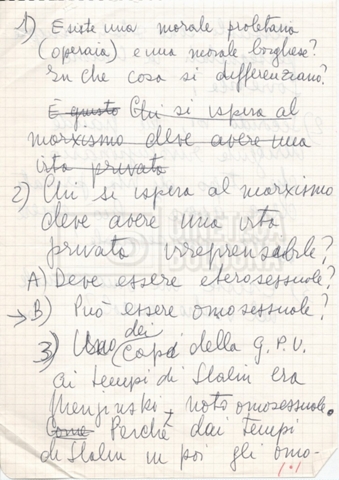 1) Esiste una morale proletaria
(operaia) e una morale borghese?
In che cosa si differenziano?
È giusto Chi si ispira al
marxismo deve avere una
vita privata
2) Chi si ispira al marxismo
deve avere una vita
privata irreprensibile?
A) Deve essere eterosessuale?
→ B) Può essere omosessuale?
3) Uno dei capi della G.P.U.
ai tempi di Stalin era
Menjinski, noto omosessuale.
Come Perché dai tempi
di Stalin in poi gli omo-